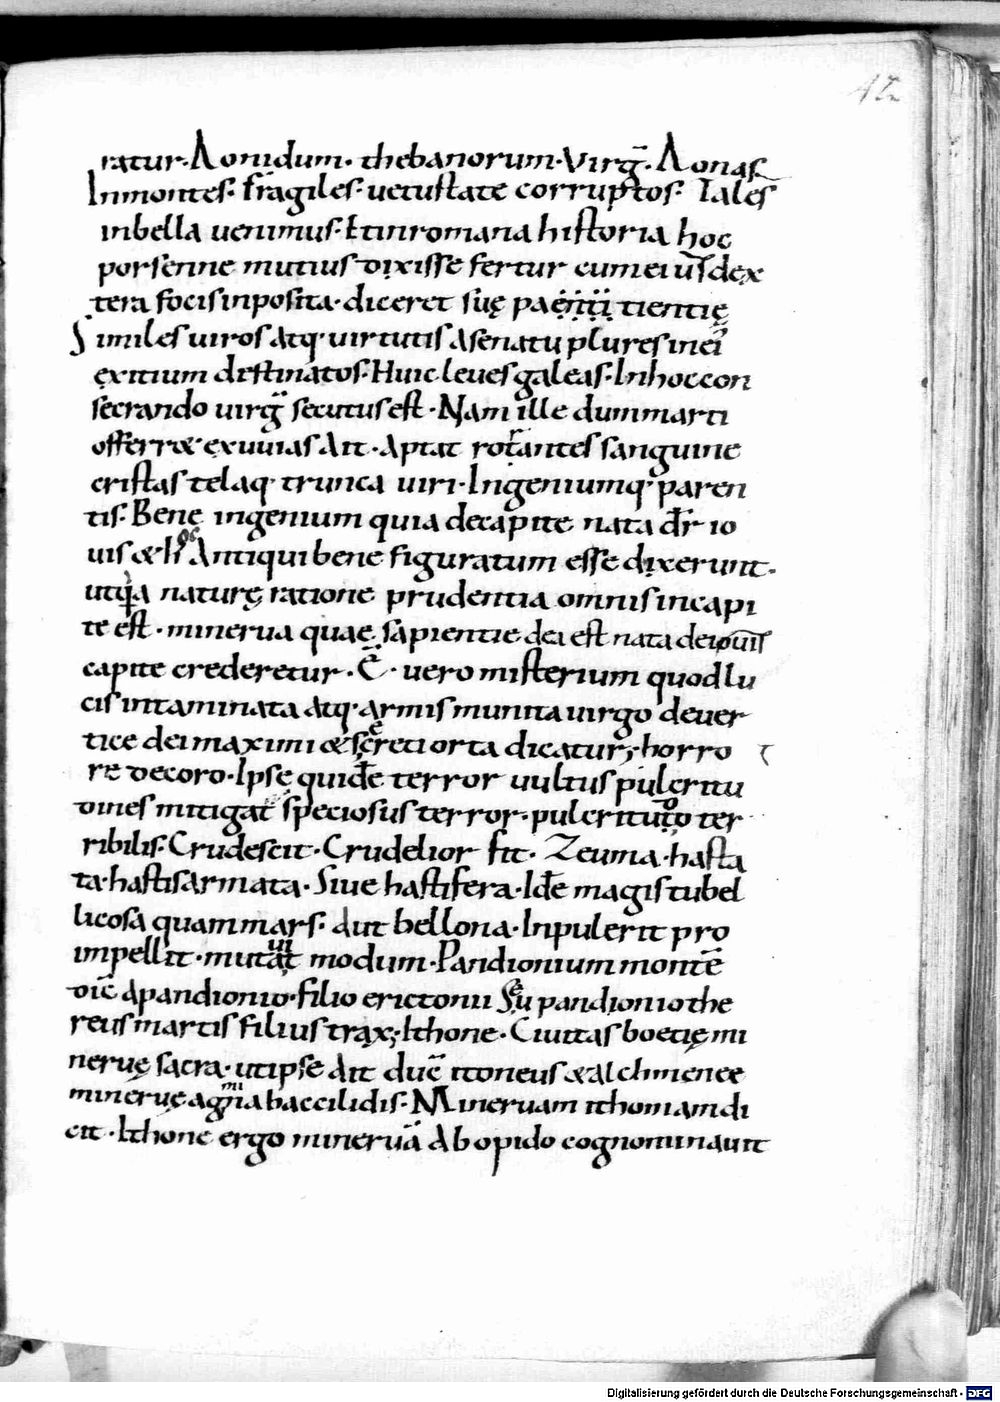 42
ratur· Aonidum· thebanorum· Virg̅· Aonas
Inmontes· fragiles· uetustate corruptos· Tales
inbella uenimus· Et inromana historia hoc
porsenne mutius dixisse fertur cumei usdex
tera focis inposita· diceret suę paenitientię
Similes uiros atq· uirtutis asenatu plures inei
exitium destinatos· Huic leues galeas· Inhoc con
secrando uirg̅ secutus est· Nam ille dummarti
offerret exuuias Ait· aptat rorantes sanguine
cristas telaq· trunca uiri· Ingeniumq· paren
tis· Bene ingenium quia decapite nata dr̅ io
uis & Antiqui bene figuratum esse dixerunt·
ut quia naturę ratione prudentia omnis incapi
te est· minerua quae sapientie dea est nata deiouis
capite crederetur· E̅· uero misterium quod lu
cis intaminata atq· armis munita uirgo deuer
tice dei maximi & secreti orta dicatur; horro
re decoro· Ipsę quide̅ terror uultus pulcritu
dines mitigat speciosus terror· pulcritudo ter
ribilis· Crudescit· Crudelior fit· Zeuma· hasta
ta· hastis armata· Siue hastifera· Ide̅ magis tu bel
licosa quam mars· aut bellona· Inpulerit pro
impellit· mutauit modum· Pandionium monte̅
dic̅ apandionio· filio erictonii Seu pandionio the
reus martis filius trax; Ithone· Ciuitas boetię mi
neruę sacra· ut ipse ait duc̅ itoneus & alchmenee
mineruę agmina baccilidis· Mineruam ithomam di
cit· Ithone ergo minerua̅ Ab opido cognominauit
Digitalisierung gefördert durch die Deutsche Forschungsgemeinschaft - DFG